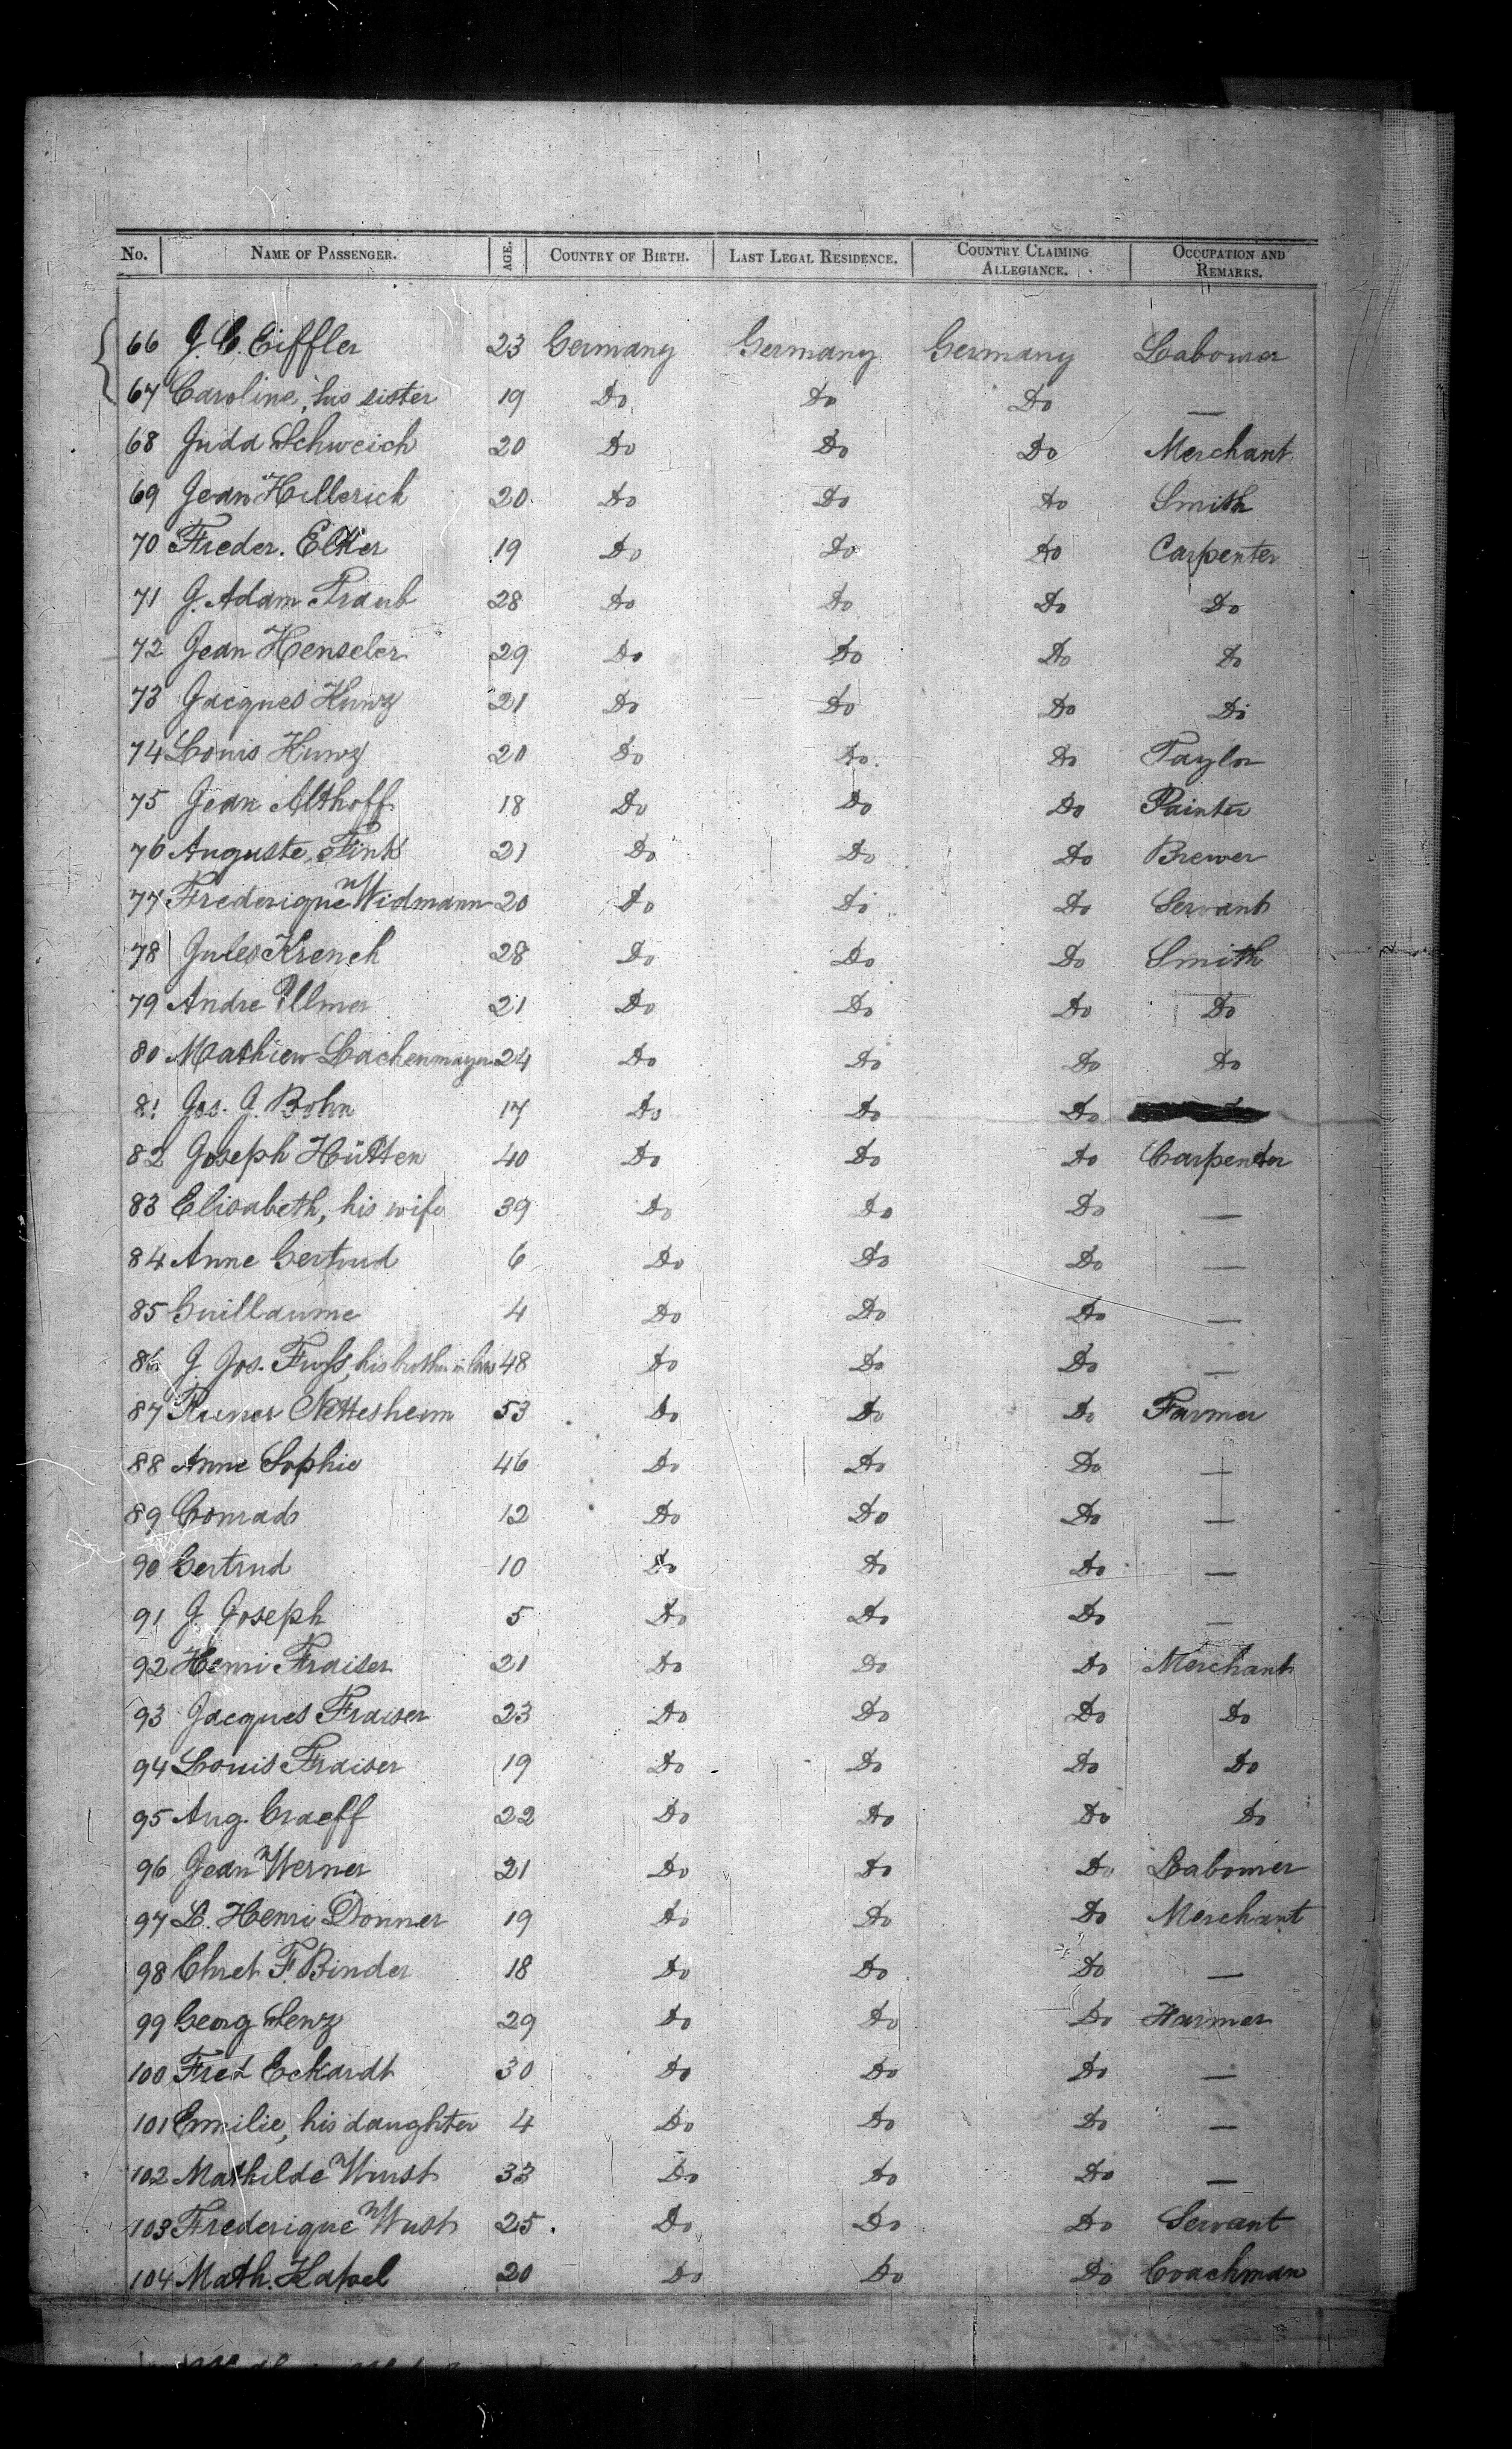 No. NAME OF PASSENGER. AGE. COUNTRY OF BIRTH. LAST LEGAL RESIDENCE. COUNTRY CLAIMING ALLEGIANCE. OCCUPATION AND REMARKS.
66 J. C. Eiffler 23 Germany Germany Germany Labourer
67 Caroline, his sister 19 Do Do Do —
68 Judd Schweich 20 Do Do Do Merchant
69 Jean Hillerich 20 Do Do Do Smith
70 Freder. 19 Do Do Do Carpenter
71 J. Adam Traub 28 Do Do Do Do
72 Jean Henseler 29 Do Do Do Do
73 Jacques Kunz 21 Do Do Do Do
74 Louis Kunz 20 Do Do Do Taylor
75 Jean Althoff 18 Do Do Do Painter
76 Auguste Fink 21 Do Do Do Brewer
77 Frederique Widmann 20 Do Do Do Servant
78 Jules Krench 28 Do Do Do Smith
79 Andre Ullmer 21 Do Do Do Do
80 Mathieu Lachenmayer 24 Do Do Do Do
81 Jos. J. Bohn 17 Do Do Do
82 Joseph Hütten 40 Do Do Do Carpenter
83 Elisabeth, his wife 39 Do Do Do —
84 Anne Gertrud 6 Do Do Do —
85 Guillaume 4 Do Do Do —
86 J. Jos. Fuss, his brother in law 48 Do Do Do —
87 Nettesheim 53 Do Do Do Farmer
88 Anne Sophie 46 Do Do Do —
89 Conrad 12 Do Do Do —
90 Gertrud 10 Do Do Do —
91 J. Joseph 5 Do Do Do —
92 Henri Fraiser 21 Do Do Do Merchant
93 Jacques Fraiser 23 Do Do Do Do
94 Louis Fraiser 19 Do Do Do Do
95 Aug. Graeff 22 Do Do Do Do
96 Jean Werner 21 Do Do Do Labourer
97 L. Henri Donner 19 Do Do Do Merchant
98 Chret F. Binder 18 Do Do Do —
99 Georg Lenz 29 Do Do Do Farmer
100 Fred Eckardt 30 Do Do Do —
101 Emilie, his daughter 4 Do Do Do —
102 Mathilde Wurst 33 Do Do Do —
103 Frederique Wust 25. Do Do Do Servant
104 Math. Kapel 20 Do Do Do Coachman